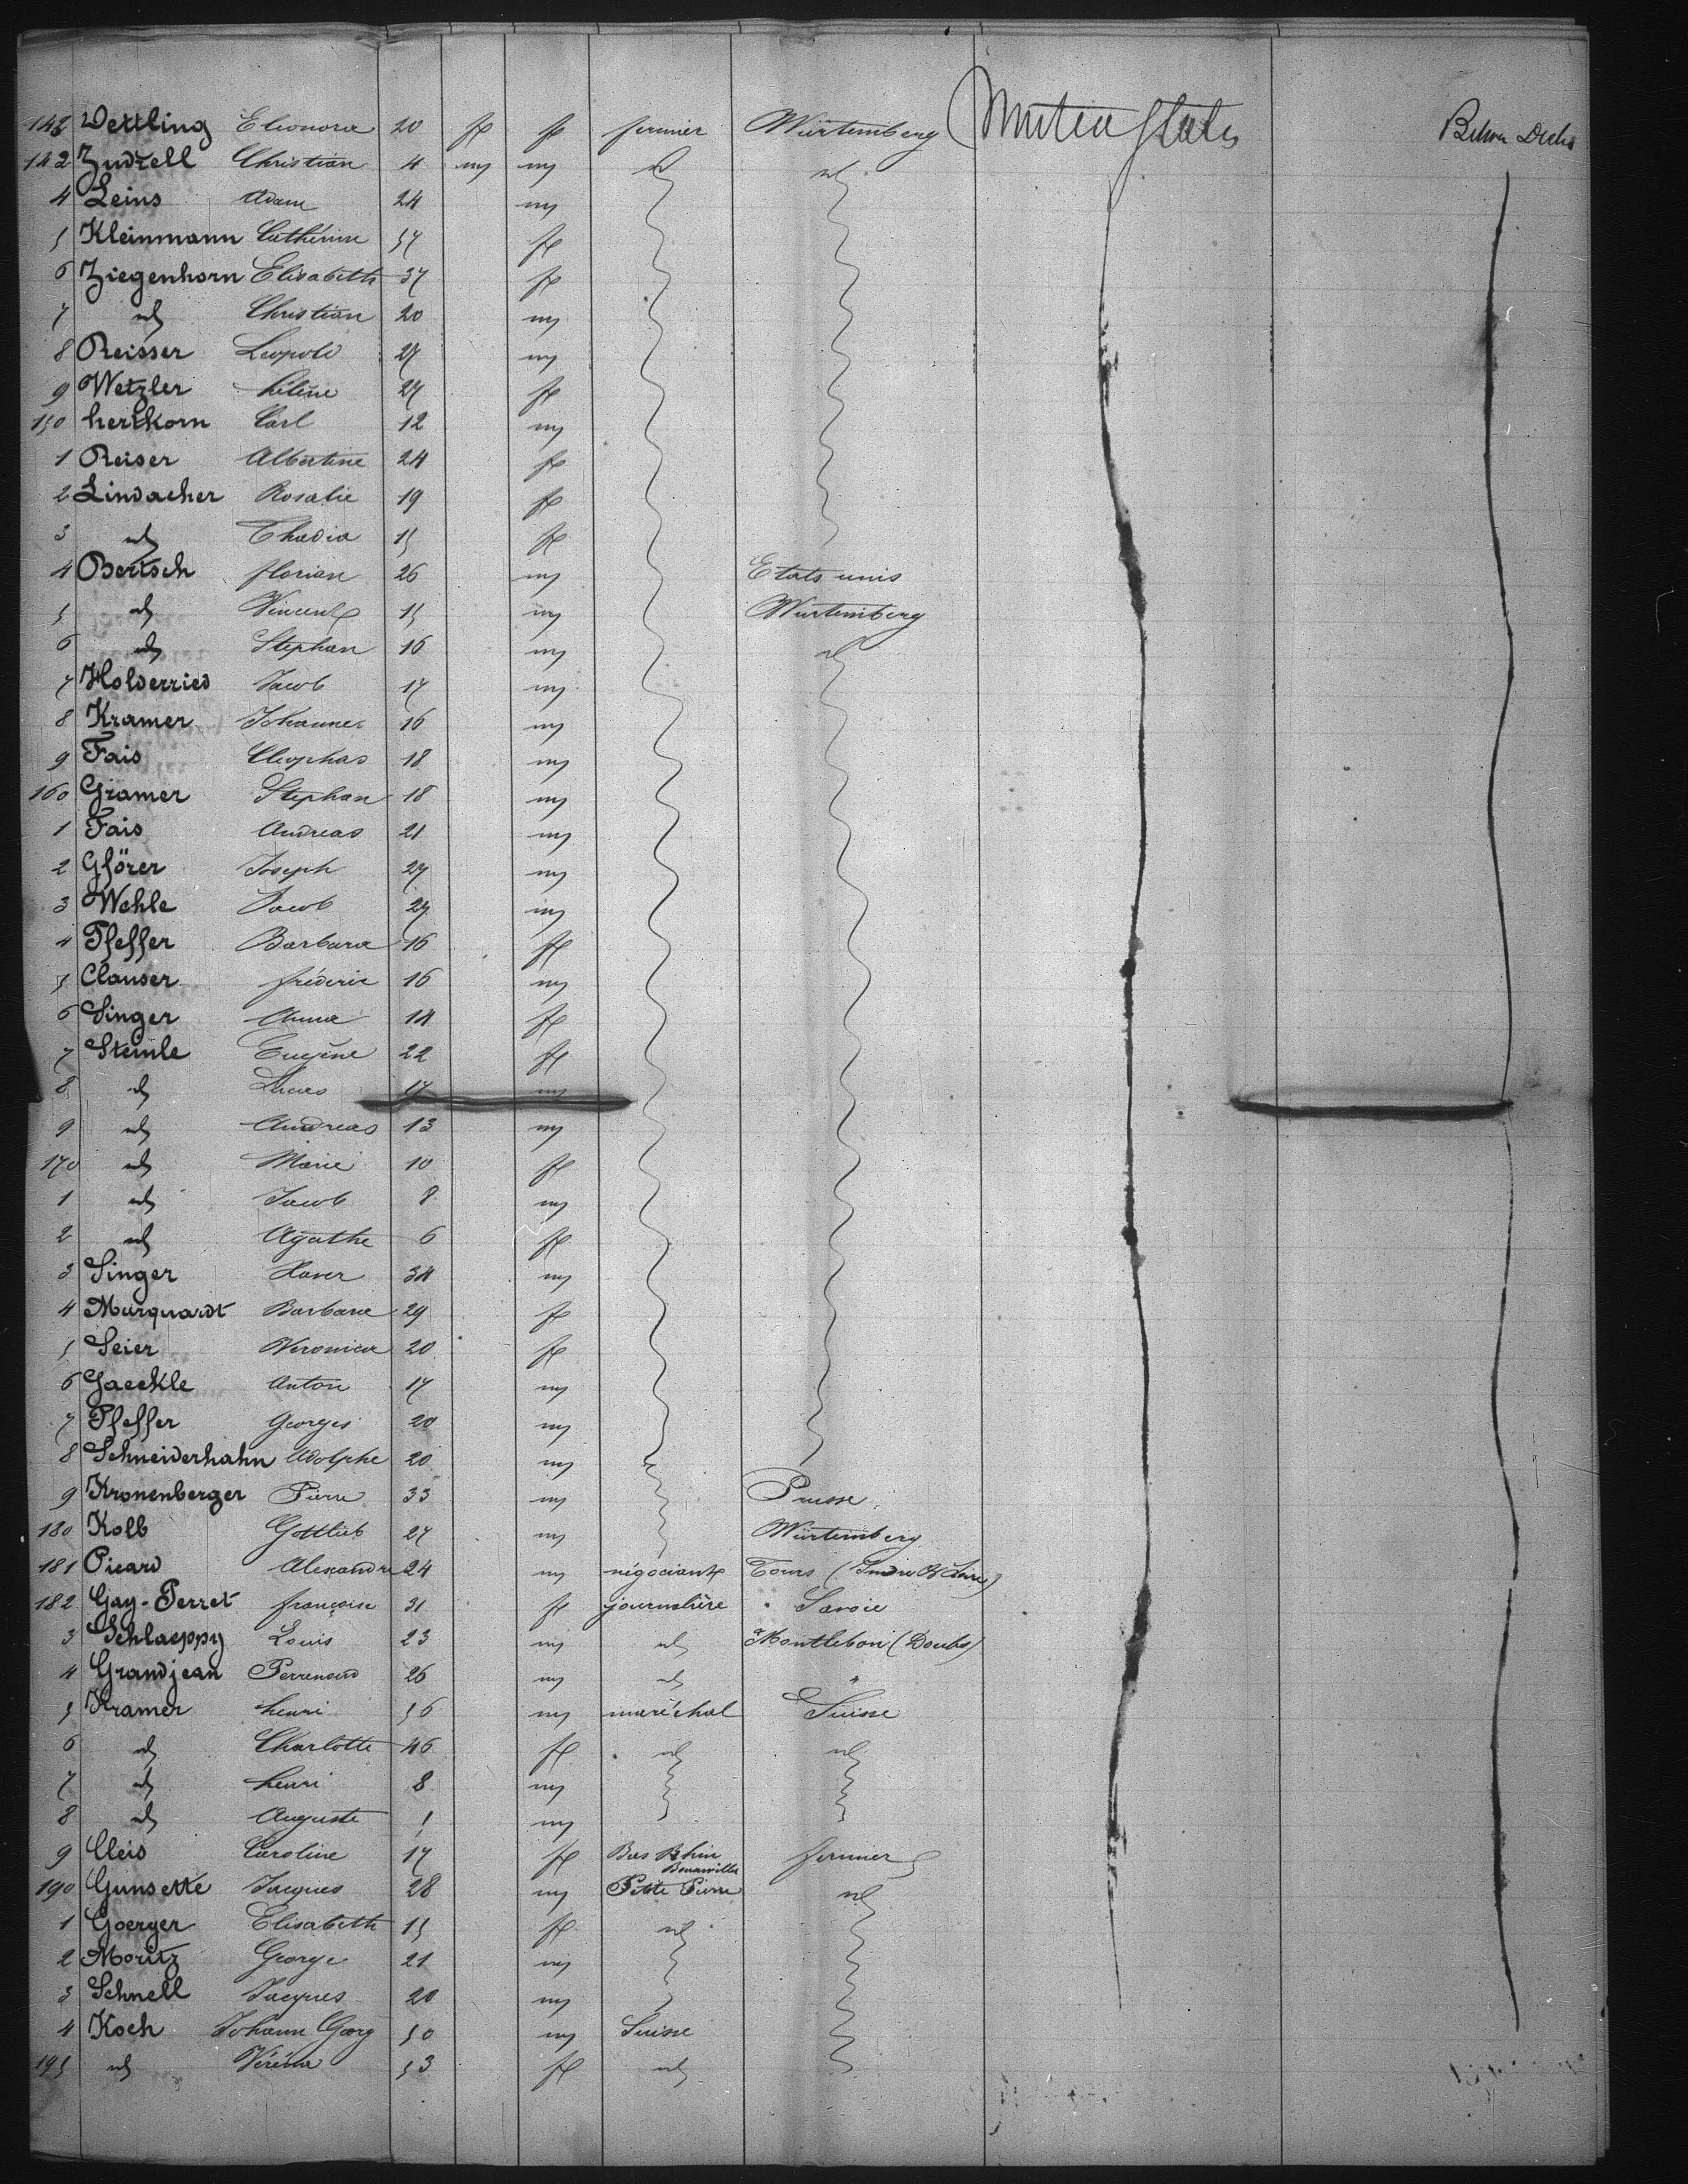 142 Dettling Eleonora 20 f f fermier Würtemberg United States Below Decks
142 Zudrell Christian 4 m m id id
4 Leins Adam 24 m
5 Kleinmann Cathérine 57 f
6 Ziegenhorn Elisabeth 37 f
7 id Christian 20 m
8 Reisser Leopold 27 m
9 Wetzler hélène 27 f
150 hertkorn Carl 12 m
1 Reiser Albertine 24 f
2 Lindacher Rosalie 19 f
3 id Thadia 15 f
4 Bertsch florian 26 m Etats unis
5 id Vincent 15 m Würtemberg
6 id Stephan 16 m id
7 Holderried Jacob 17 m
8 Kramer Johannes 16 m
9 Fais Cleophas 18 m
160 Gramer Stephan 18 m
1 Fais Andreas 21 m
2 Gförer Joseph 27 m
3 Wehle Jacob 27 m
4 Pfeffer Barbara 16 f
5 Clauser fréderic 16 m
6 Singer Anna 14 f
7 Steinle Eugène 22 f
8 id Lucas 17 m
9 id Andreas 13 m
170 id Marie 10 f
1 id Jacob 8 m
2 id Agathe 6 f
3 Singer Xaver 34 m
4 Murquardt Barbara 29 f
5 Seier Veronica 20 f
6 Jaeckle Anton 17 m
7 Pfeffer Georges 20 m
8 Schneiderhahn Adolphe 20 m
9 Kronenberger Pierre 33 m Prusse
180 Kolb Gottlieb 27 m Würtemberg
181 Picard Alexandre 24 m négociant Tours (Indre & Loire)
182 Gay-Perret françoise 31 f journalière Savoie
3 Schlaeppy Louis 23 m id Montlebon (Doubs)
4 Grandjean Perrenoud 26 m id "
5 Kramer henri 56 m maréchal Suisse
6 id Charlotte 46 f id id
7 id henri 8 m
8 id Auguste 1 m
9 Cleis Caroline 17 f Bas Rhin fermier
190 Gunsette Jacques 28 m Petite Pierre id
1 Goerger Elisabeth 15 f id
2 Moritz George 21 m
3 Schnell Jacques 20 m
4 Koch Johann Georg 50 m Suisse
195 id Véréna 53 f id